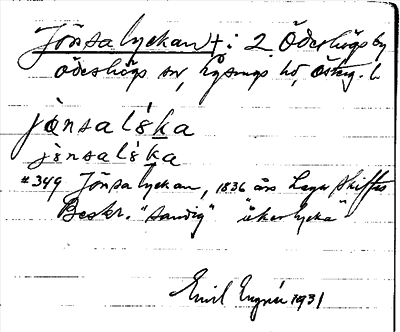 Jönsalyckan †: 2 Ödeshögs by
Ödeshögs sn, Lysings hd, Östg. l.
jònsalíska
jònsalíska
#349 Jönsalyckan, 1836 års Laga Skiftes
Beskr. "sandig" "åkerlycka"
Emil 1931